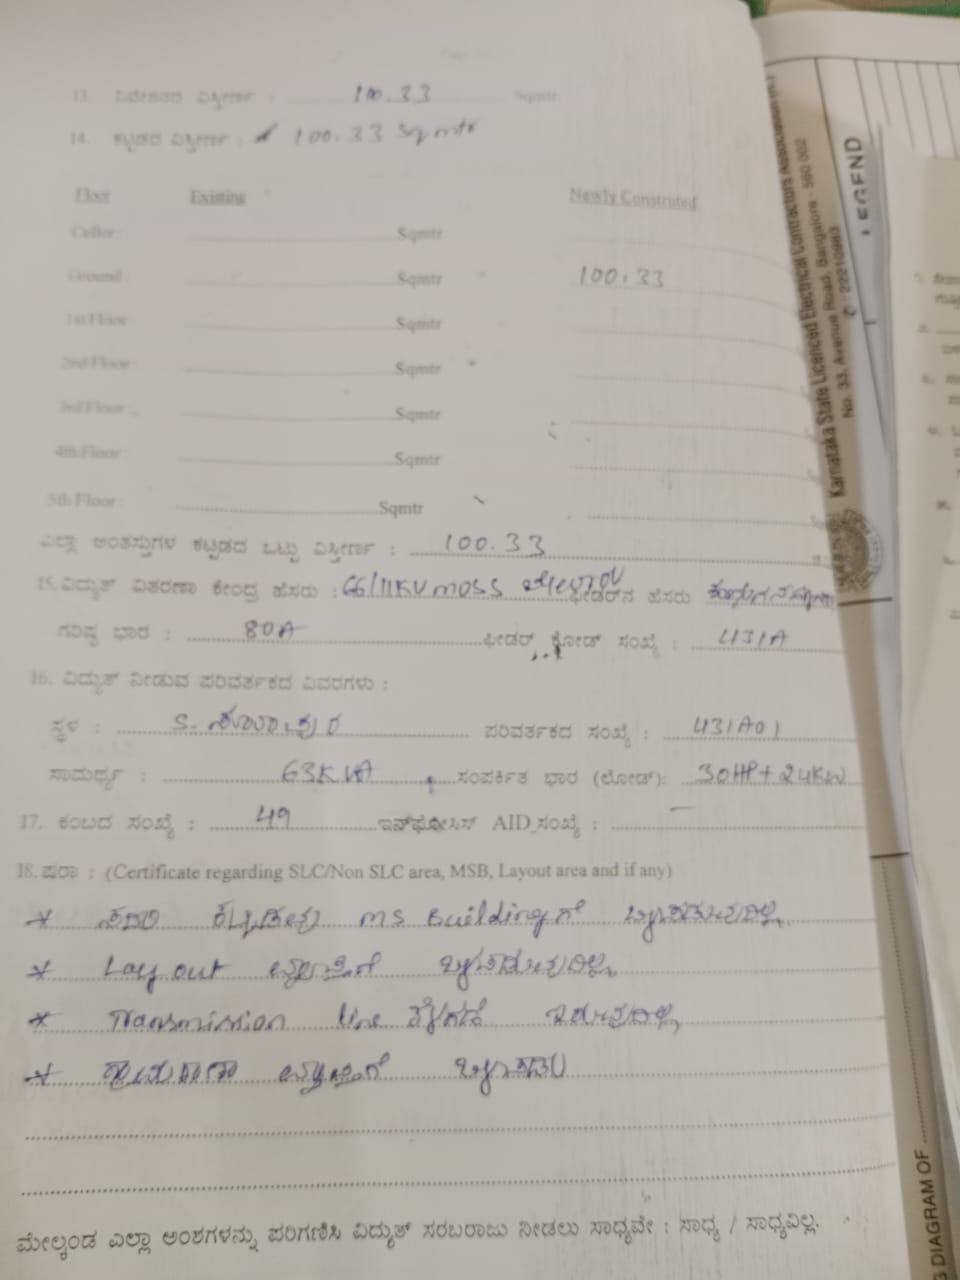 13. ನಿವೇಶನದ ವಿಸ್ತೀರ್ಣ : 100.33 Sqmtr
14. ಕಟ್ಟಡದ ವಿಸ್ತೀರ್ಣ : 100.33 Sqmtr
Floor Existing Newly Construted
Celler: Sqmtr
Ground : Sqmtr 100.33
1st Floor : Sqmtr
2nd Floor : Sqmtr
3rd Floor : Sqmtr
4th Floor : Sqmtr
5th Floor : Sqmtr
ಎಲ್ಲಾ ಅಂತಸ್ತುಗಳ ಕಟ್ಟಡದ ಒಟ್ಟು ವಿಸ್ತೀರ್ಣ : 100.33
15. ವಿದ್ಯುತ್ ವಿತರಣಾ ಕೇಂದ್ರ ಹೆಸರು : 66/11KV MUSS ಫೀಡರ್‌ನ ಹೆಸರು
ಗರಿಷ್ಠ ಭಾರ : 80A ಫೀಡರ್ ಕೋಡ್ ಸಂಖ್ಯೆ : 431A
16. ವಿದ್ಯುತ್ ನೀಡುವ ಪರಿವರ್ತಕದ ವಿವರಗಳು :
ಸ್ಥಳ : S. ಪರಿವರ್ತಕದ ಸಂಖ್ಯೆ : 431A01
ಸಾಮರ್ಥ್ಯ : 63KVA ಸಂಪರ್ಕಿತ ಭಾರ (ಲೋಡ್): 30HP+24KW
17. ಕಂಬದ ಸಂಖ್ಯೆ : 49 ಇನ್‌ಫೋಸಿಸ್ AID ಸಂಖ್ಯೆ : —
18. ಷರಾ : (Certificate regarding SLC/Non SLC area, MSB, Layout area and if any)
* ಸದರಿ ಕಟ್ಟಡವು MS Buildingಗೆ ಒಳಪಡುವುದಿಲ್ಲ.
* Layout ವ್ಯಾಪ್ತಿಗೆ ಒಳಪಡುವುದಿಲ್ಲ
* Transmission line ಕೆಳಗಡೆ ಇರುವುದಿಲ್ಲ
* ವ್ಯಾಪ್ತಿಗೆ
ಮೇಲ್ಕಂಡ ಎಲ್ಲಾ ಅಂಶಗಳನ್ನು ಪರಿಗಣಿಸಿ ವಿದ್ಯುತ್ ಸರಬರಾಜು ನೀಡಲು ಸಾಧ್ಯವೇ : ಸಾಧ್ಯ / ಸಾಧ್ಯವಿಲ್ಲ.
Karnataka State Licenced Electrical Contractors Association
No. 33, Avenue Road, Bangalore - 560 002
✆ : 22210983
LEGEND
G DIAGRAM OF